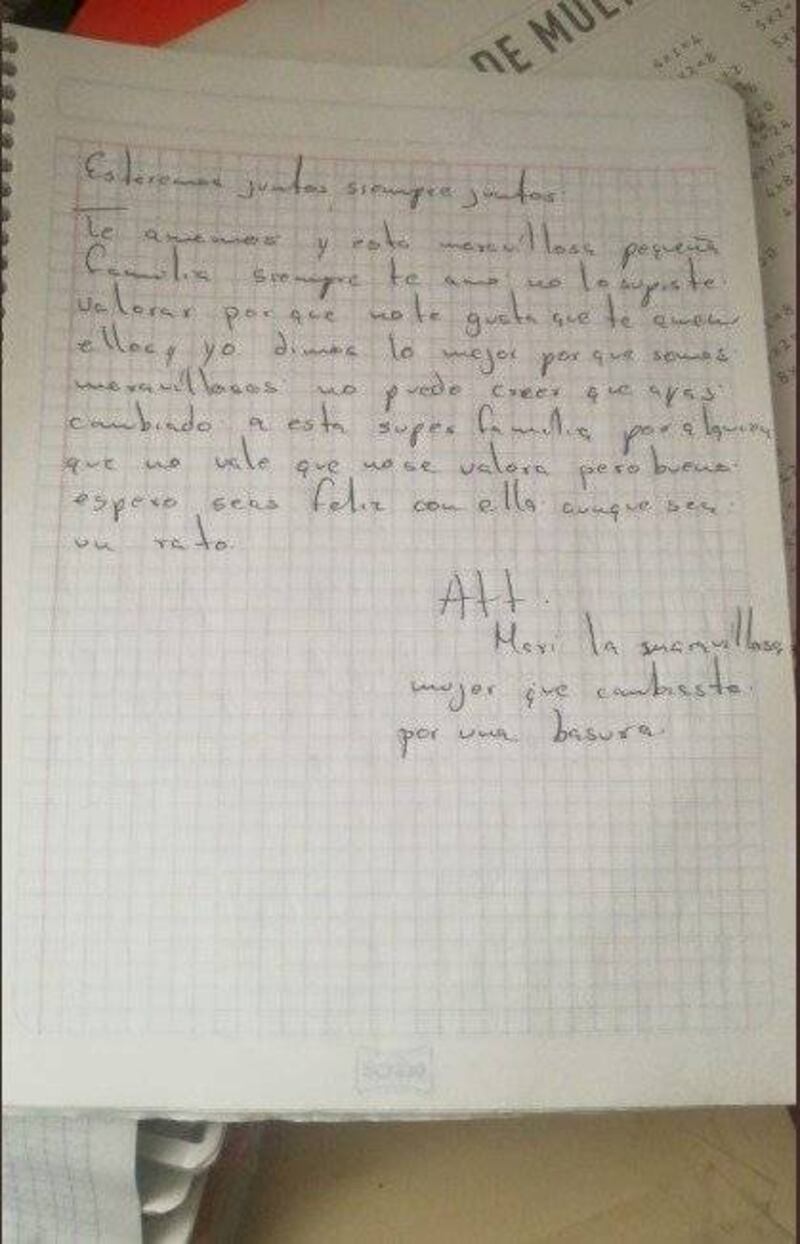 DE MUL
Estaremos juntos siempre juntos.
Te amamos y esta maravillosa pequeña
familia siempre te amo no lo supiste
valorar por que no te gusta que te amen
ellos y yo dimos lo mejor por que somos
maravillosos no puedo creer que ayas
cambiado a esta super familia por alguien
que no vale que no se valora pero bueno
espero seas feliz con ella aunque sea
un rato.
Att.
Mari la maravillosa
mujer que cambiaste
por una basura.
Scribe